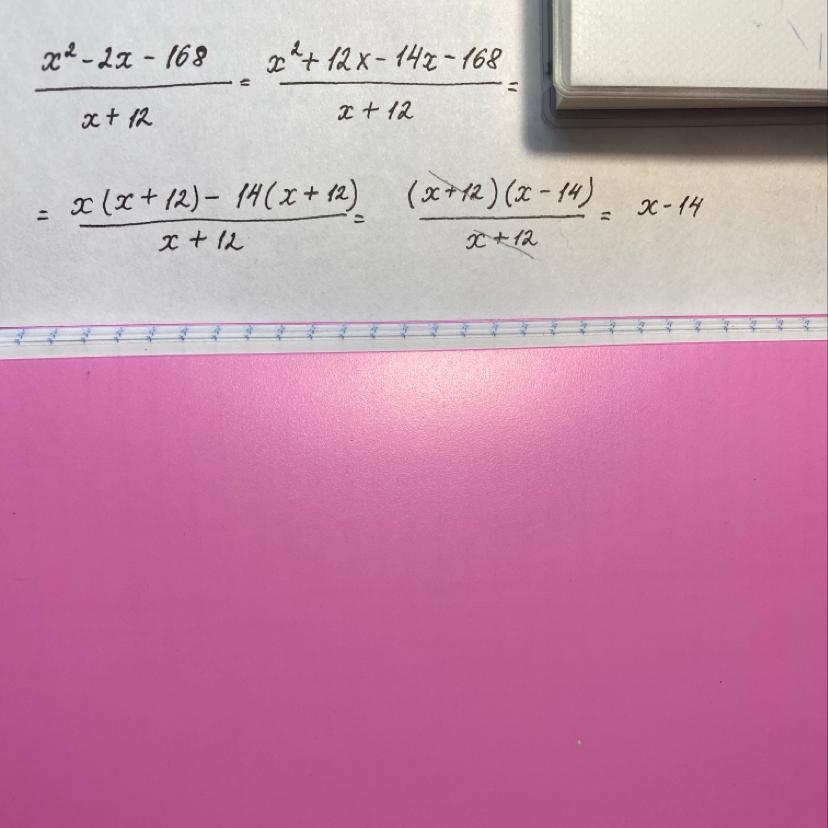 x² - 2x - 168 / x + 12 = x² + 12x - 14x - 168 / x + 12 =
= x(x + 12) - 14(x + 12) / x + 12 = (x + 12)(x - 14) / x + 12 = x - 14